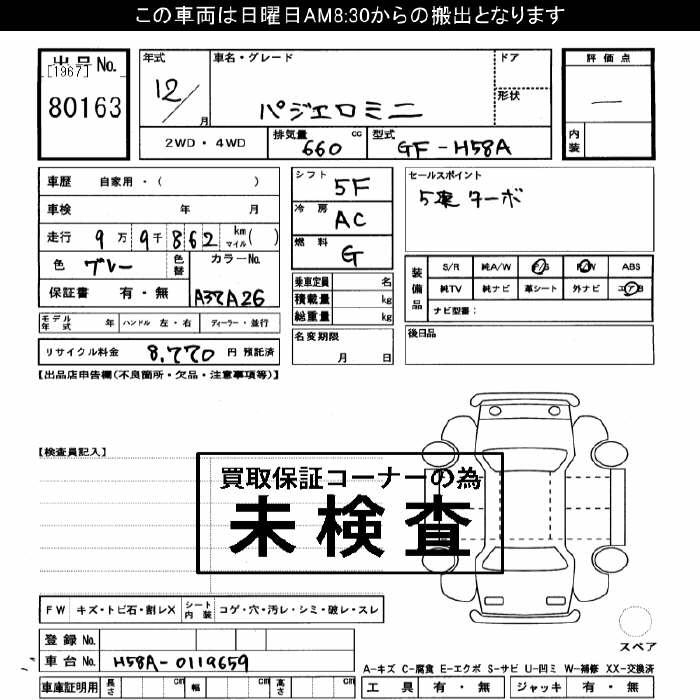 この車両は日曜日AM8:30からの搬出となります
出品No.
[1967]
80163
年式
12/
月
車名・グレード
パジェロミニ
ドア
形状
評価点
—
内装
2WD・4WD
排気量
cc
660
型式
GF-H58A
車歴 自家用・( )
車検 年 月
走行 9万9千862 km マイル( )
色 グレー
色替
カラーNo.
A37A26
保証書 有・無
モデル年式 年
ハンドル 左・右
ディーラー・並行
リサイクル料金 8,770 円 預託済
シフト 5F
冷房 AC
燃料 G
乗車定員 名
積載量 kg
総重量 kg
名変期限
月 日
セールスポイント
5速 ターボ
装備品
S/R 純A/W P/S P/W ABS
純TV 純ナビ 革シート 外ナビ エアB
ナビ型番:
後日品
【出品店申告欄(不良箇所・欠品・注意事項等)】
【検査員記入】
買取保証コーナーの為
未検査
FW キズ・トビ石・割レX
シート内装 コゲ・穴・汚レ・シミ・破レ・スレ
登録No.
車台No. H58A-0119659
車庫証明用 長さ cm 幅 cm 高さ cm
スペア
A-キズ C-腐食 E-エクボ S-サビ U-凹ミ W-補修 XX-交換済
工具 有・無 ジャッキ 有・無